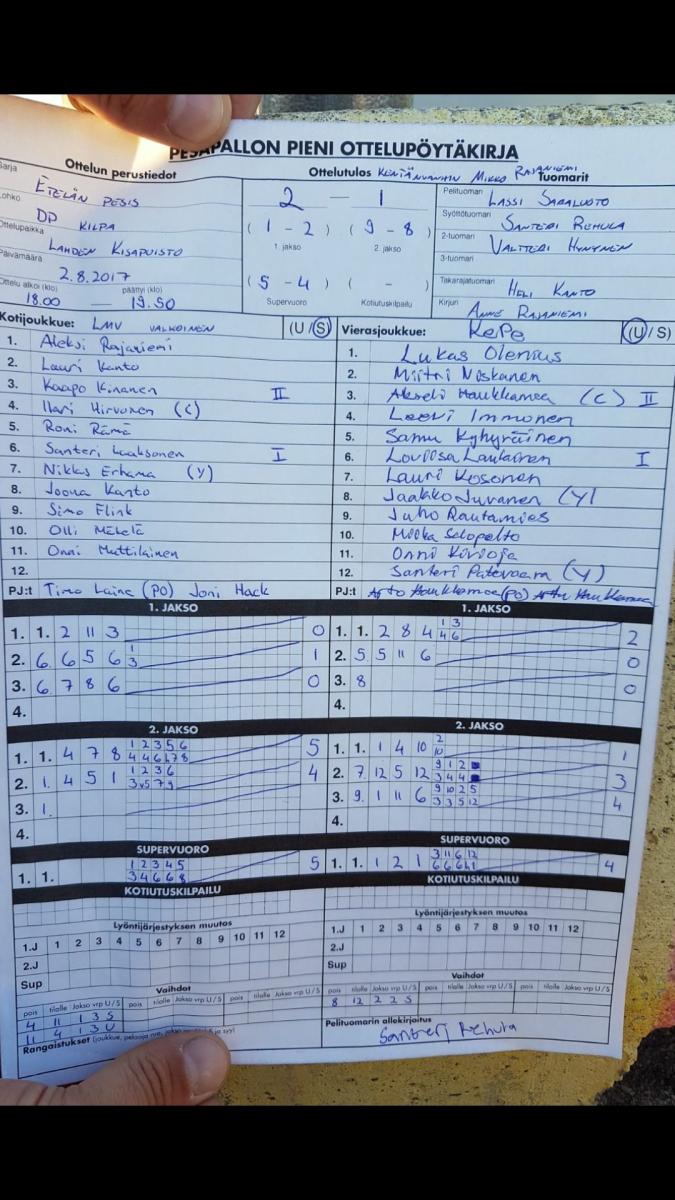 PESÄPALLON PIENI OTTELUPÖYTÄKIRJA
Sarja
Ottelun perustiedot
ETELÄN PESIS
Lohko
DP KILPA
Ottelupaikka
LAHDEN KISAPUISTO
Päivämäärä
2.8.2017
Ottelu alkoi (klo) päättyi (klo)
18.00 — 19.50
Ottelutulos KENTÄNVANHIN MIKKO RAJANIEMI
2 — 1
( 1 - 2 ) ( 9 - 8 )
1. jakso 2. jakso
( 5 - 4 ) ( - )
Supervuoro Kotiutuskilpailu
Tuomarit
Pelituomari LASSI SARALUOTO
Syöttötuomari SANTERI REHULA
2-tuomari VALTTERI HYNYNEN
3-tuomari
Takarajatuomari HELI KANTO
Kirjuri ANNE RAJANIEMI
Kotijoukkue: LMV VALKOINEN (U/S)
1. Aleksi Rajaniemi
2. Lauri Kanto
3. Kaapo Kinanen II
4. Ilari Hirvonen (C)
5. Roni Rämä
6. Santeri Laaksonen I
7. Niklas Erhama (Y)
8. Joona Kanto
9. Simo Flink
10. Olli Mäkelä
11. Onni Muttilainen
12.
PJ:t Timo Laine (PO) Joni Hack
Vierasjoukkue: KePe (U/S)
1. Lukas Olenius
2. Miitri Niskanen
3. Akseli Haukkamaa (C) II
4. Leevi Immonen
5. Samu Kyhyräinen
6. Loviisa Lautainen I
7. Lauri Kosonen
8. Jaakko Juvanen (Y)
9. Juho Rautamies
10. Miika Salopelto
11. Onni Kivioja
12. Santeri Patovaara (Y)
PJ:t Arto Haukkamaa (PO) Haukkamaa
1. JAKSO
1. 1. 2 11 3 0
2. 6 6 5 6 1 3 1
3. 6 7 8 6 0
4.
2. JAKSO
1. 1. 4 7 8 1 2 3 5 6 5
4 4 6 7 8
2. 1. 4 5 1 1 2 3 6 4
3 5 7 9
3. 1.
4.
SUPERVUORO
1. 1. 1 2 3 4 5 5
3 4 6 6 8
KOTIUTUSKILPAILU
1. JAKSO
1. 1. 2 8 4 1 3 2
4 6
2. 5 5 11 6 0
3. 8 0
4.
2. JAKSO
1. 1. 1 4 10 2 1
10
2. 7 12 5 12 9 1 2 3
3 4 4
3. 9 1 11 6 9 10 2 5 4
3 3 5 12
4.
SUPERVUORO
1. 1. 1 2 1 3 11 6 12 4
KOTIUTUSKILPAILU
Lyöntijärjestyksen muutos
1.J 1 2 3 4 5 6 7 8 9 10 11 12
2.J
Sup
Vaihdot
pois tilalle Jakso vrp U/S pois tilalle Jakso vrp U/S pois tilalle Jakso vrp U/S
4 11 1 3 S
11 4 1 3 U
Rangaistukset (joukkue, pelaaja
Lyöntijärjestyksen muutos
1.J 1 2 3 4 5 6 7 8 9 10 11 12
2.J
Sup
Vaihdot
pois tilalle Jakso vrp U/S pois tilalle Jakso vrp U/S pois tilalle Jakso vrp U/S
8 12 2 2 S
Pelituomarin allekirjoitus
Santeri Rehula